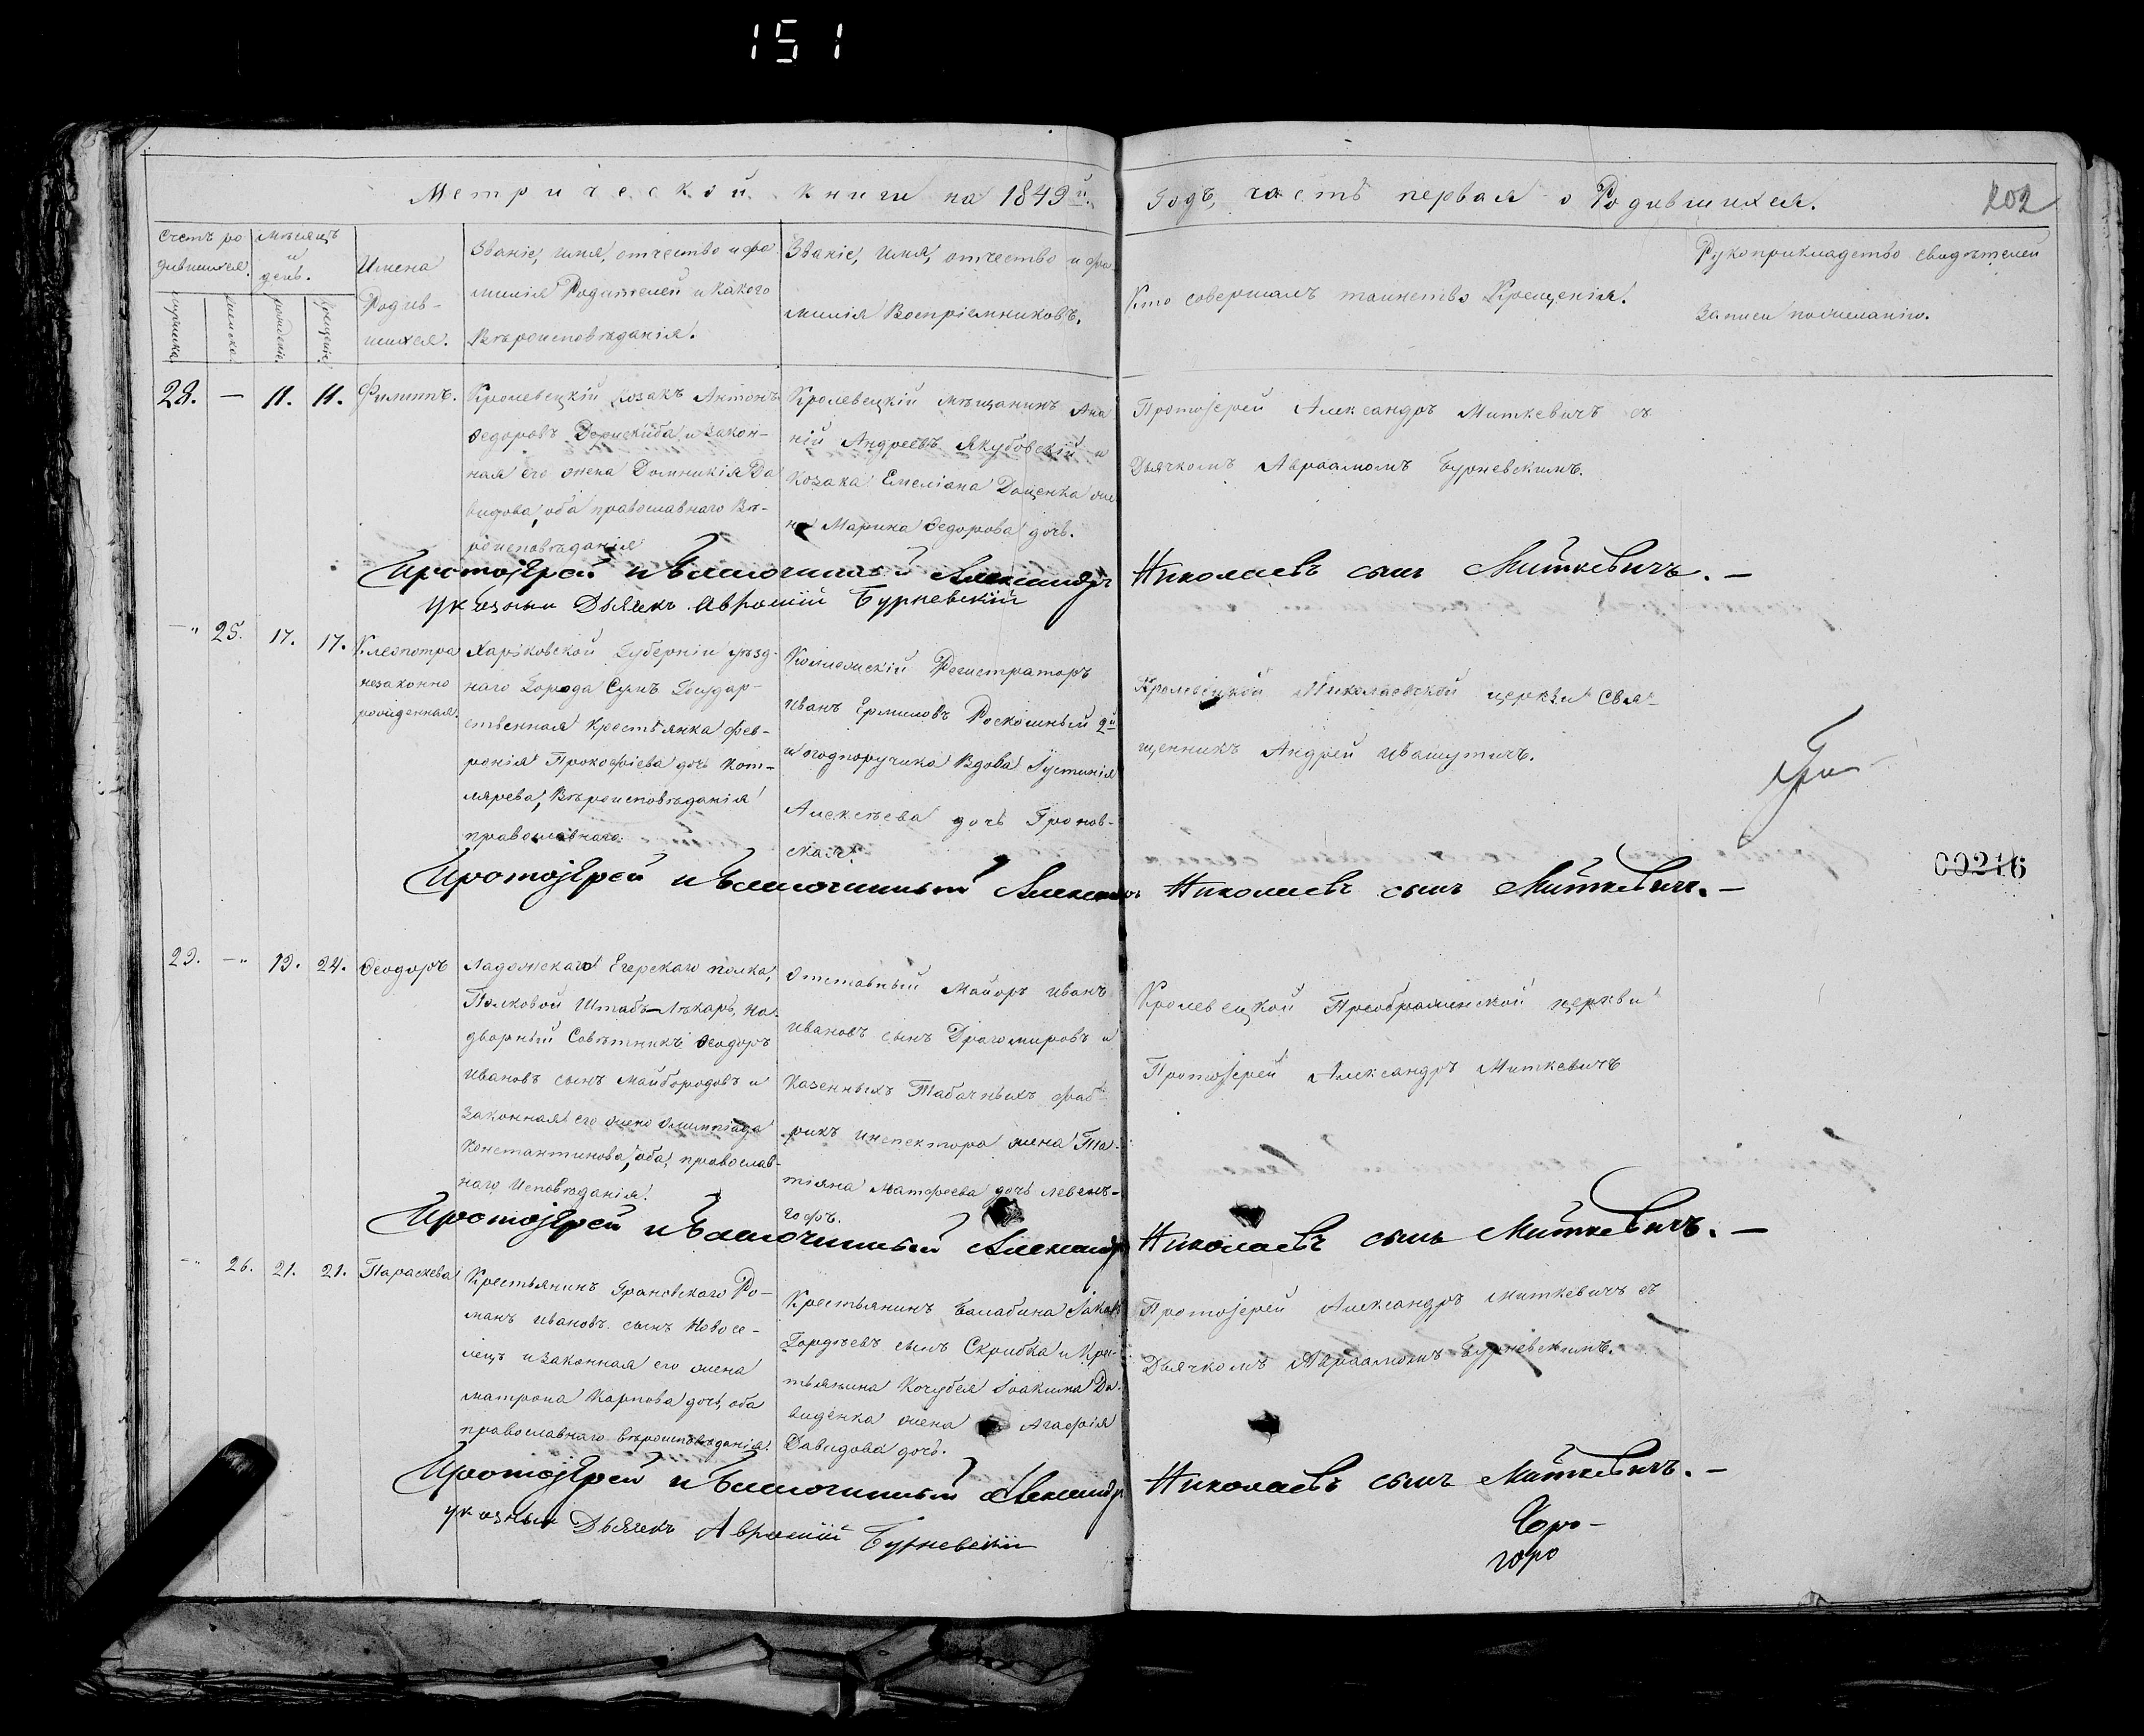 151
Метрической книги на 1849й. Годъ, часть первая о Родившихся.
202
Счетъ ро
дившихся.
Мѣсяцъ
и
день.
мужеска.
женска.
рожденія.
крещенія.
Имена
Родив-
шихся.
Званіе, имя, отчество и фа
милія Родителей и какого
Вѣроисповѣданія.
Званіе, имя, отчество и фа-
милія Воспріемниковъ.
Кто совершалъ таинство Крещенія.
Рукоприкладство свидѣтелей
Записи по желанію.
28. — 11. 11. Филиппъ.
Кролевецкій козакъ Антонъ
Ѳедоровъ и закон-
ная его жена Домникія Да
видова, оба православнаго Вѣ-
роисповѣданія
Кролевецкій мѣщанинъ Ана
ній Андреевъ Якубовскій и
козака Емеліана Даценка же
на Марина Ѳедорова дочь.
Протоіерей Александръ Миткевичъ съ
Дьячкомъ Авраамомъ Бурневскимъ.
Протоіерей и Благочинный Александръ Николаевъ сынъ Миткевичъ. —
Указный Дьячекъ Аврамій Бурневскій
— " 25. 17. 17. Клеопатра
незаконно
рожденная.
Харьковской Губерніи уѣзд-
наго Города Сумъ Государ-
ственная крестьянка Фев-
ронія Прокофіева дочь Кот-
лярева, Вѣроисповѣданія
православнаго.
Коллежскій Регистраторъ
Иванъ Ермиловъ Роскошный 2й
и подпоручика Вдова Іустинія
Алексѣева дочь Гронов-
ская.
Кролевецкой Николаевской церкви Свя-
щенникъ Андрей Ивашутичъ.
Протоіерей и Благочинный Александръ Николаевъ сынъ Миткевичъ. —
00216
29. — " 19. 24. Ѳеодоръ
Ладожскаго Егерскаго полка,
Полковой Штабъ-Лѣкарь, На-
дворный Совѣтникъ Ѳеодоръ
Ивановъ сынъ Майбородовъ и
Законная его жена Олимпіада
Константинова, оба православ-
наго Исповѣданія.
Отставный Майоръ Иванъ
Ивановъ сынъ Драгомировъ и
Казенныхъ Табачныхъ фаб-
рикъ инспектора жена Та-
тіяна Матфеева дочь Левень-
гофъ.
Кролевецкой Преображенской церкви
Протоіерей Александръ Миткевичъ
Протоіерей и Благочинный Александръ Николаевъ сынъ Миткевичъ. —
— " 26. 21. 21. Параскева
Крестьянинъ Грановскаго Ро-
манъ Ивановъ сынъ Новосе-
лецъ и законная его жена
Матрона Карпова дочь, оба
православнаго вѣроисповѣданія.
Крестьянинъ Балабина Іаковъ
Гордѣевъ сынъ Скрибка и Крес-
тьянина Кочубея Іоакима Да-
виденка жена Агафія
Давидова дочь.
Протоіерей Александръ Миткевичъ съ
Дьячкомъ Авраамомъ Бурневскимъ.
Протоіерей и Благочинный Александръ Николаевъ сынъ Миткевичъ. —
Указный Дьячекъ Аврамій Бурневскій
горо